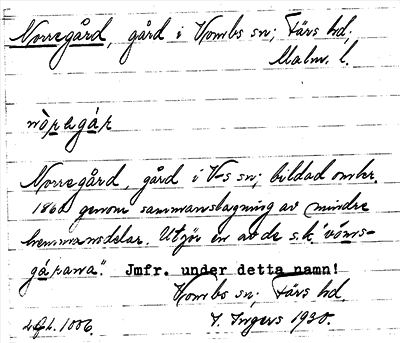 Norregård, gård i Vombs sn; Färs hd,
Malm. l.
nòregár
Norregård, gård i V-s sn; bildad omkr.
1860 genom sammanslagning av mindre
hemmansdelar. Utgör en av de s.k. "vòms-
gárana". Jmfr. under detta namn!
Vombs sn; Färs hd
1006. I. Ingers 1930.